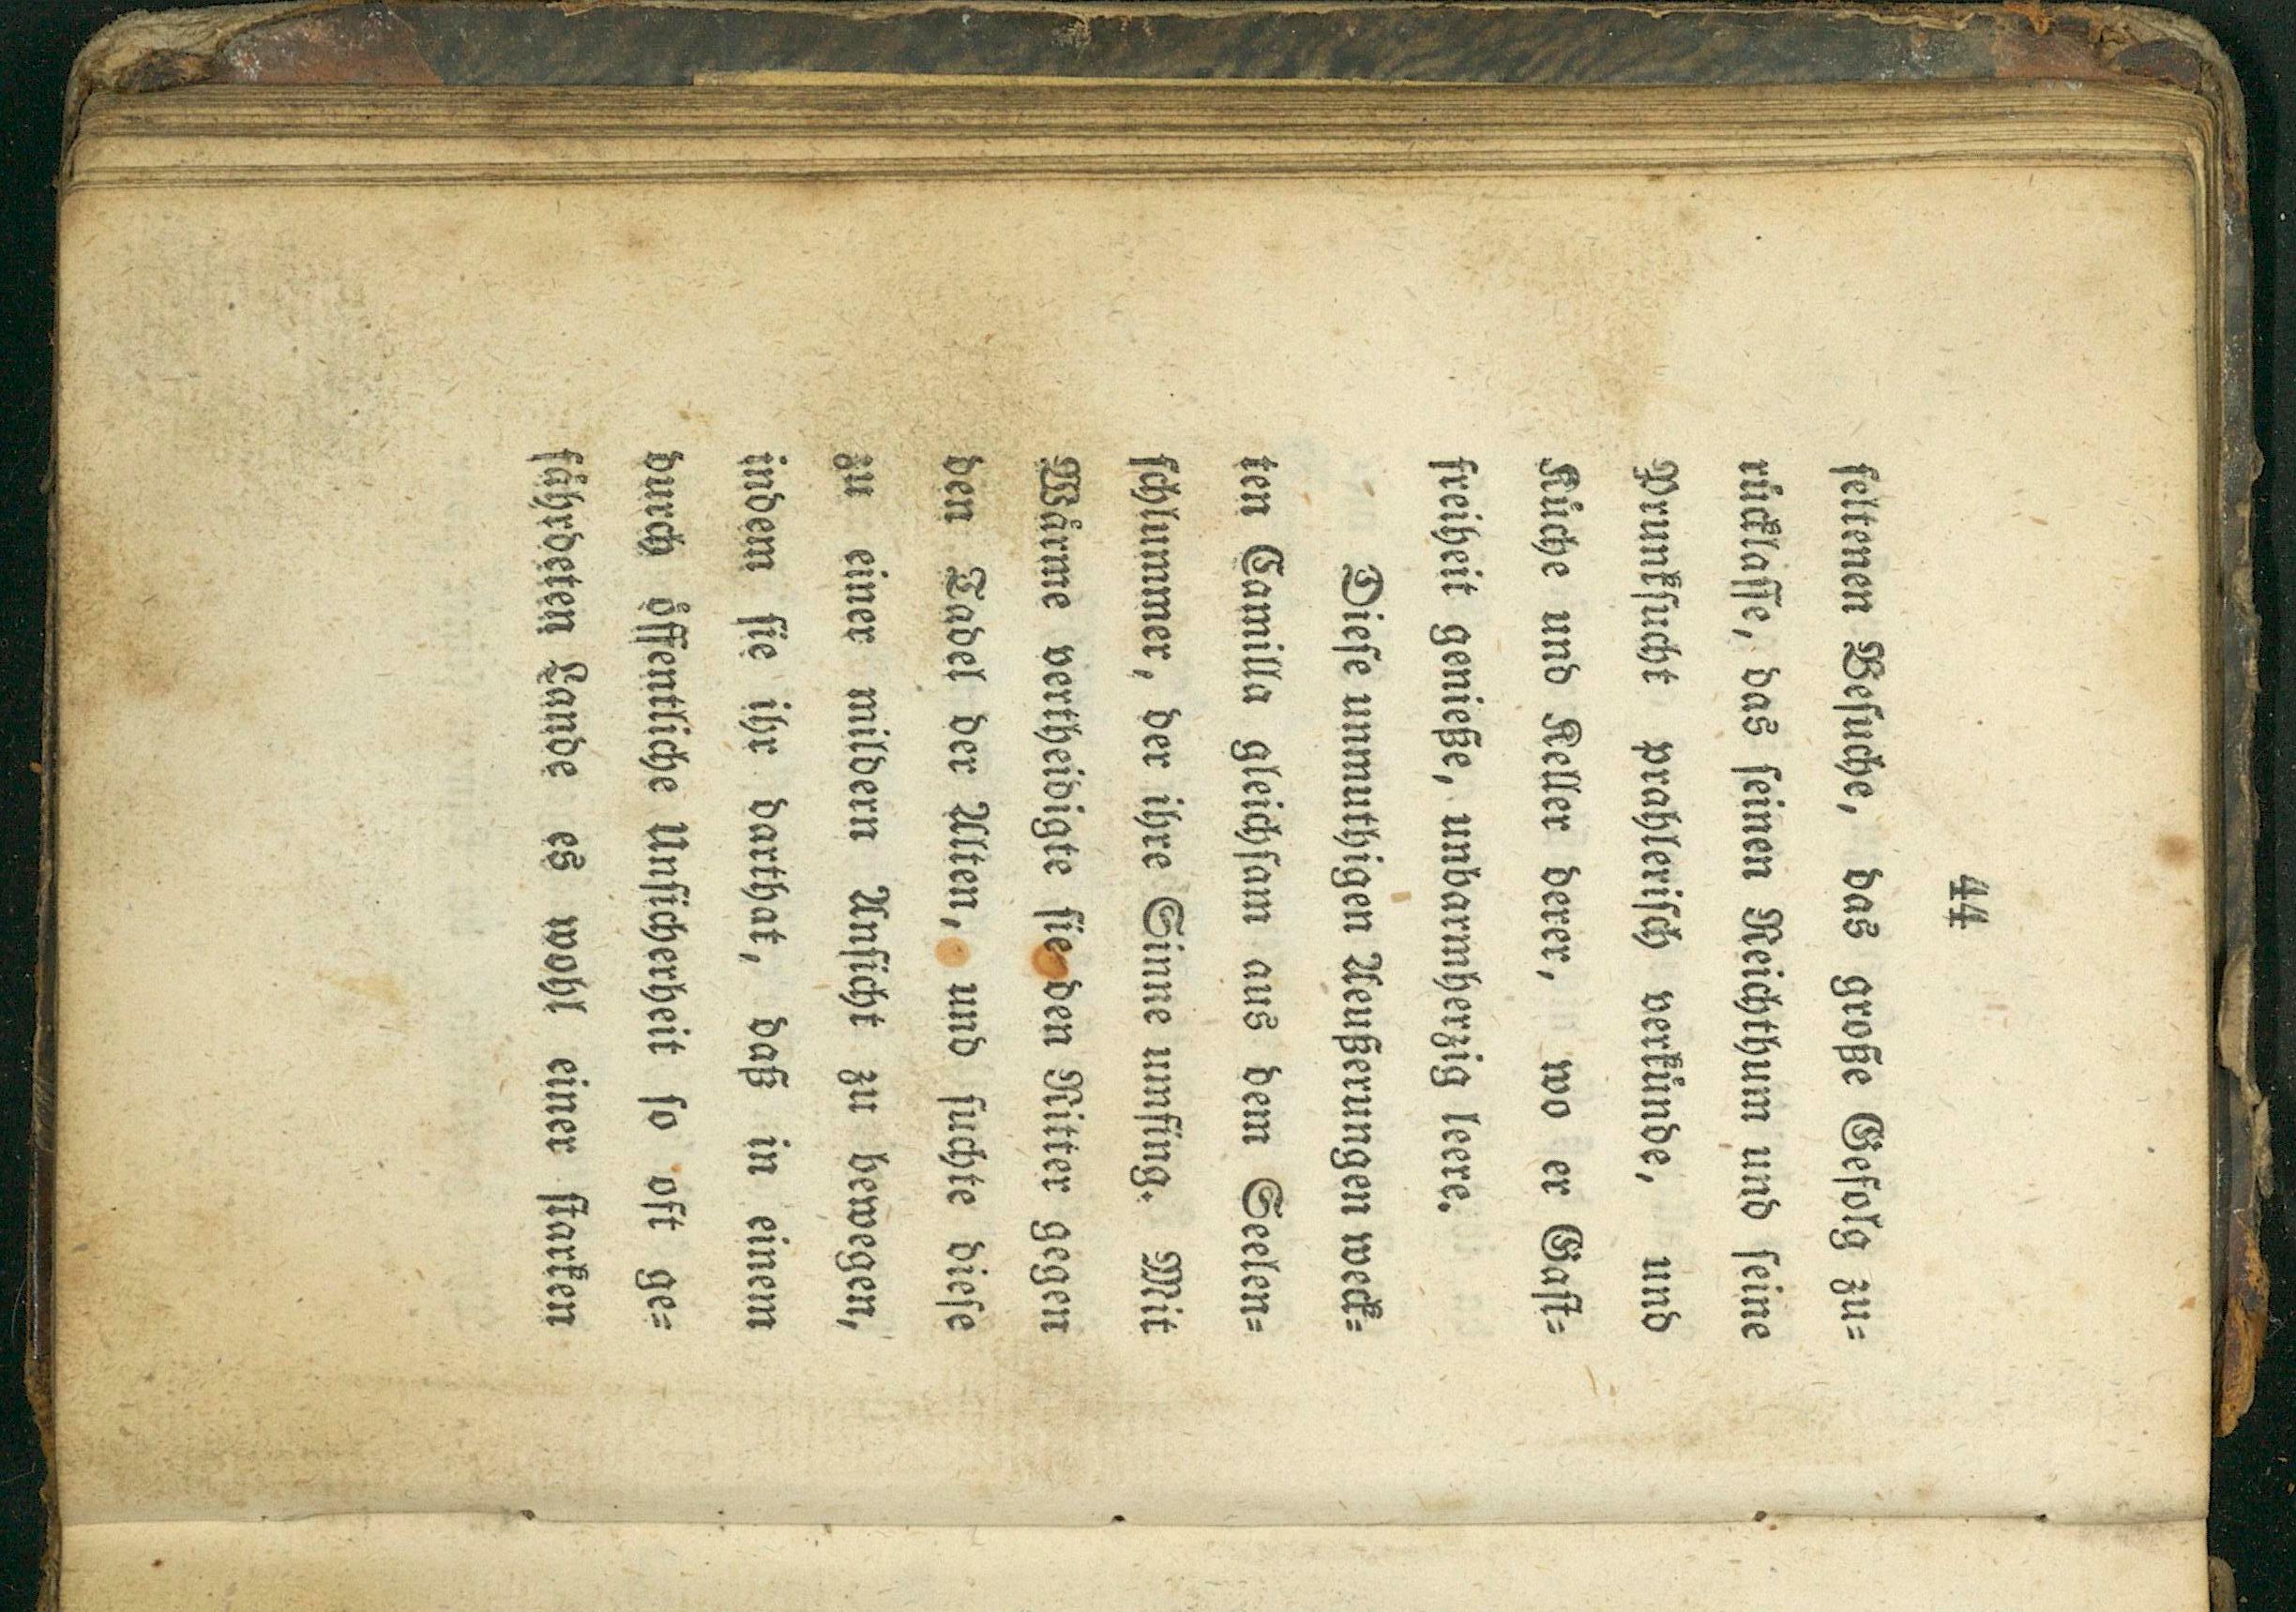 44
ſeltenen Beſuche, das große Gefolg zu-
rücklaſſe, das ſeinen Reichthum und ſeine
Prunkſucht prahleriſch verkünde, und
Küche und Keller derer, wo er Gaſt-
freiheit genieße, unbarmherzig leere.
Dieſe unmuthigen Aeußerungen weck-
ten Camilla gleichſam aus dem Seelen-
ſchlummer, der ihre Sinne umfing. Mit
Wärme vertheidigte ſie den Ritter gegen
den Tadel der Alten, und ſuchte dieſe
zu einer mildern Anſicht zu bewegen,
indem ſie ihr darthat, daß in einem
durch öffentliche Unſicherheit ſo oft ge-
fährdeten Lande es wohl einer ſtarken